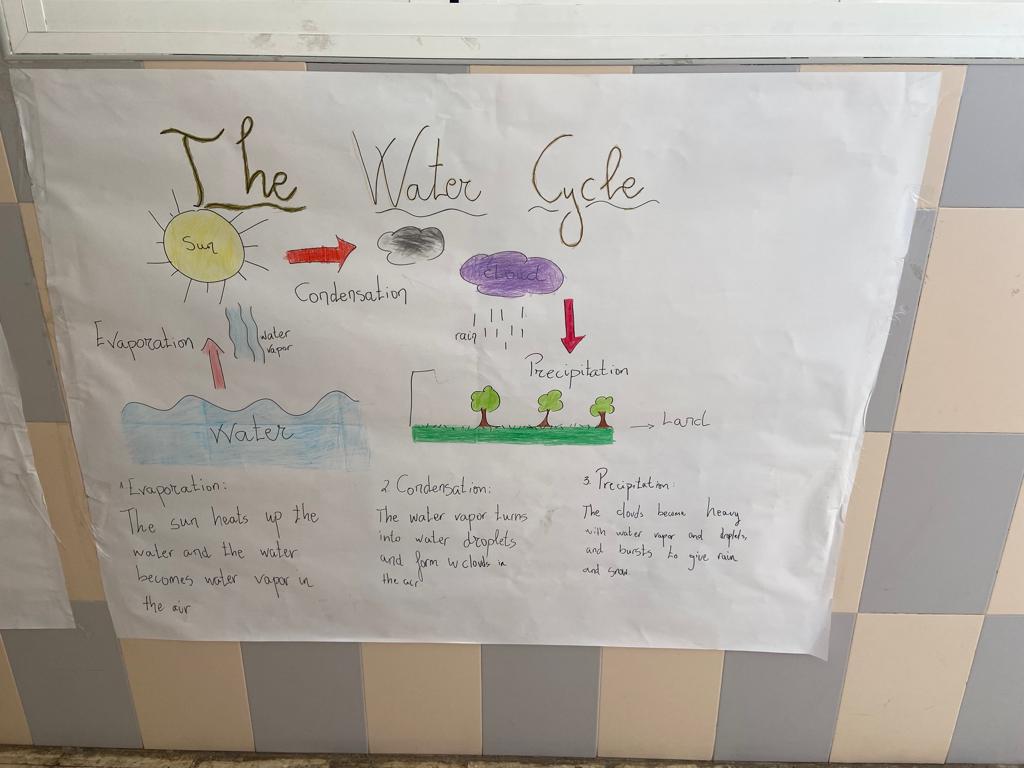 The Water Cycle
Sun
Condensation
cloud
Evaporation
water
vapor
rain
Precipitation
Water
Land
1 Evaporation:
The sun heats up the
water and the water
becomes water vapor in
the air
2. Condensation:
The water vapor turns
into water droplets
and form w clouds in
the air
3. Precipitation:
The clouds become heavy
with water vapor and droplets,
and bursts to give rain
and snow.